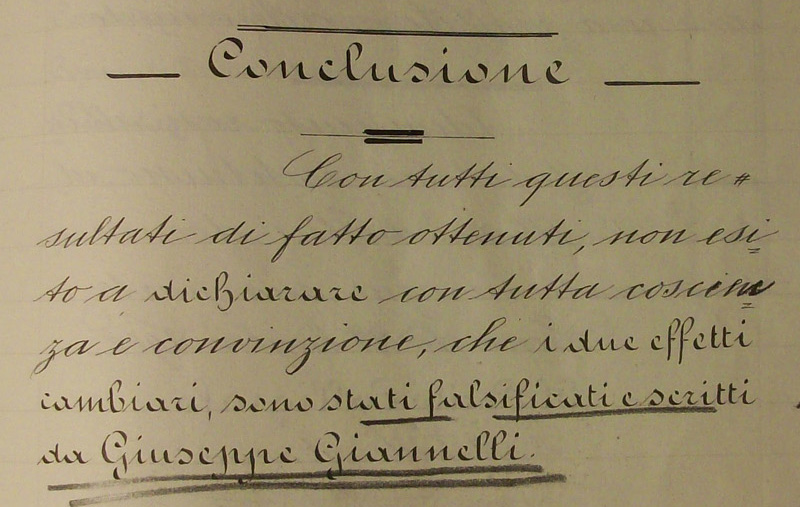 Conclusione
Con tutti questi re=
sultati di fatto ottenuti, non esi=
to a dichiarare con tutta coscien=
za e convinzione, che i due effetti
cambiari, sono stati falsificati e scritti
da Giuseppe Giannelli.